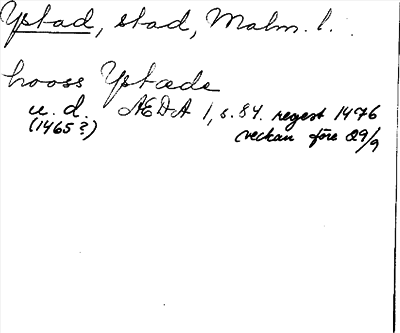 Ystad, stad, Malm. l.
hooss Ystæde
u. d. AEDA 1, s. 84. regest 1476
(1465?) veckan före 29/9